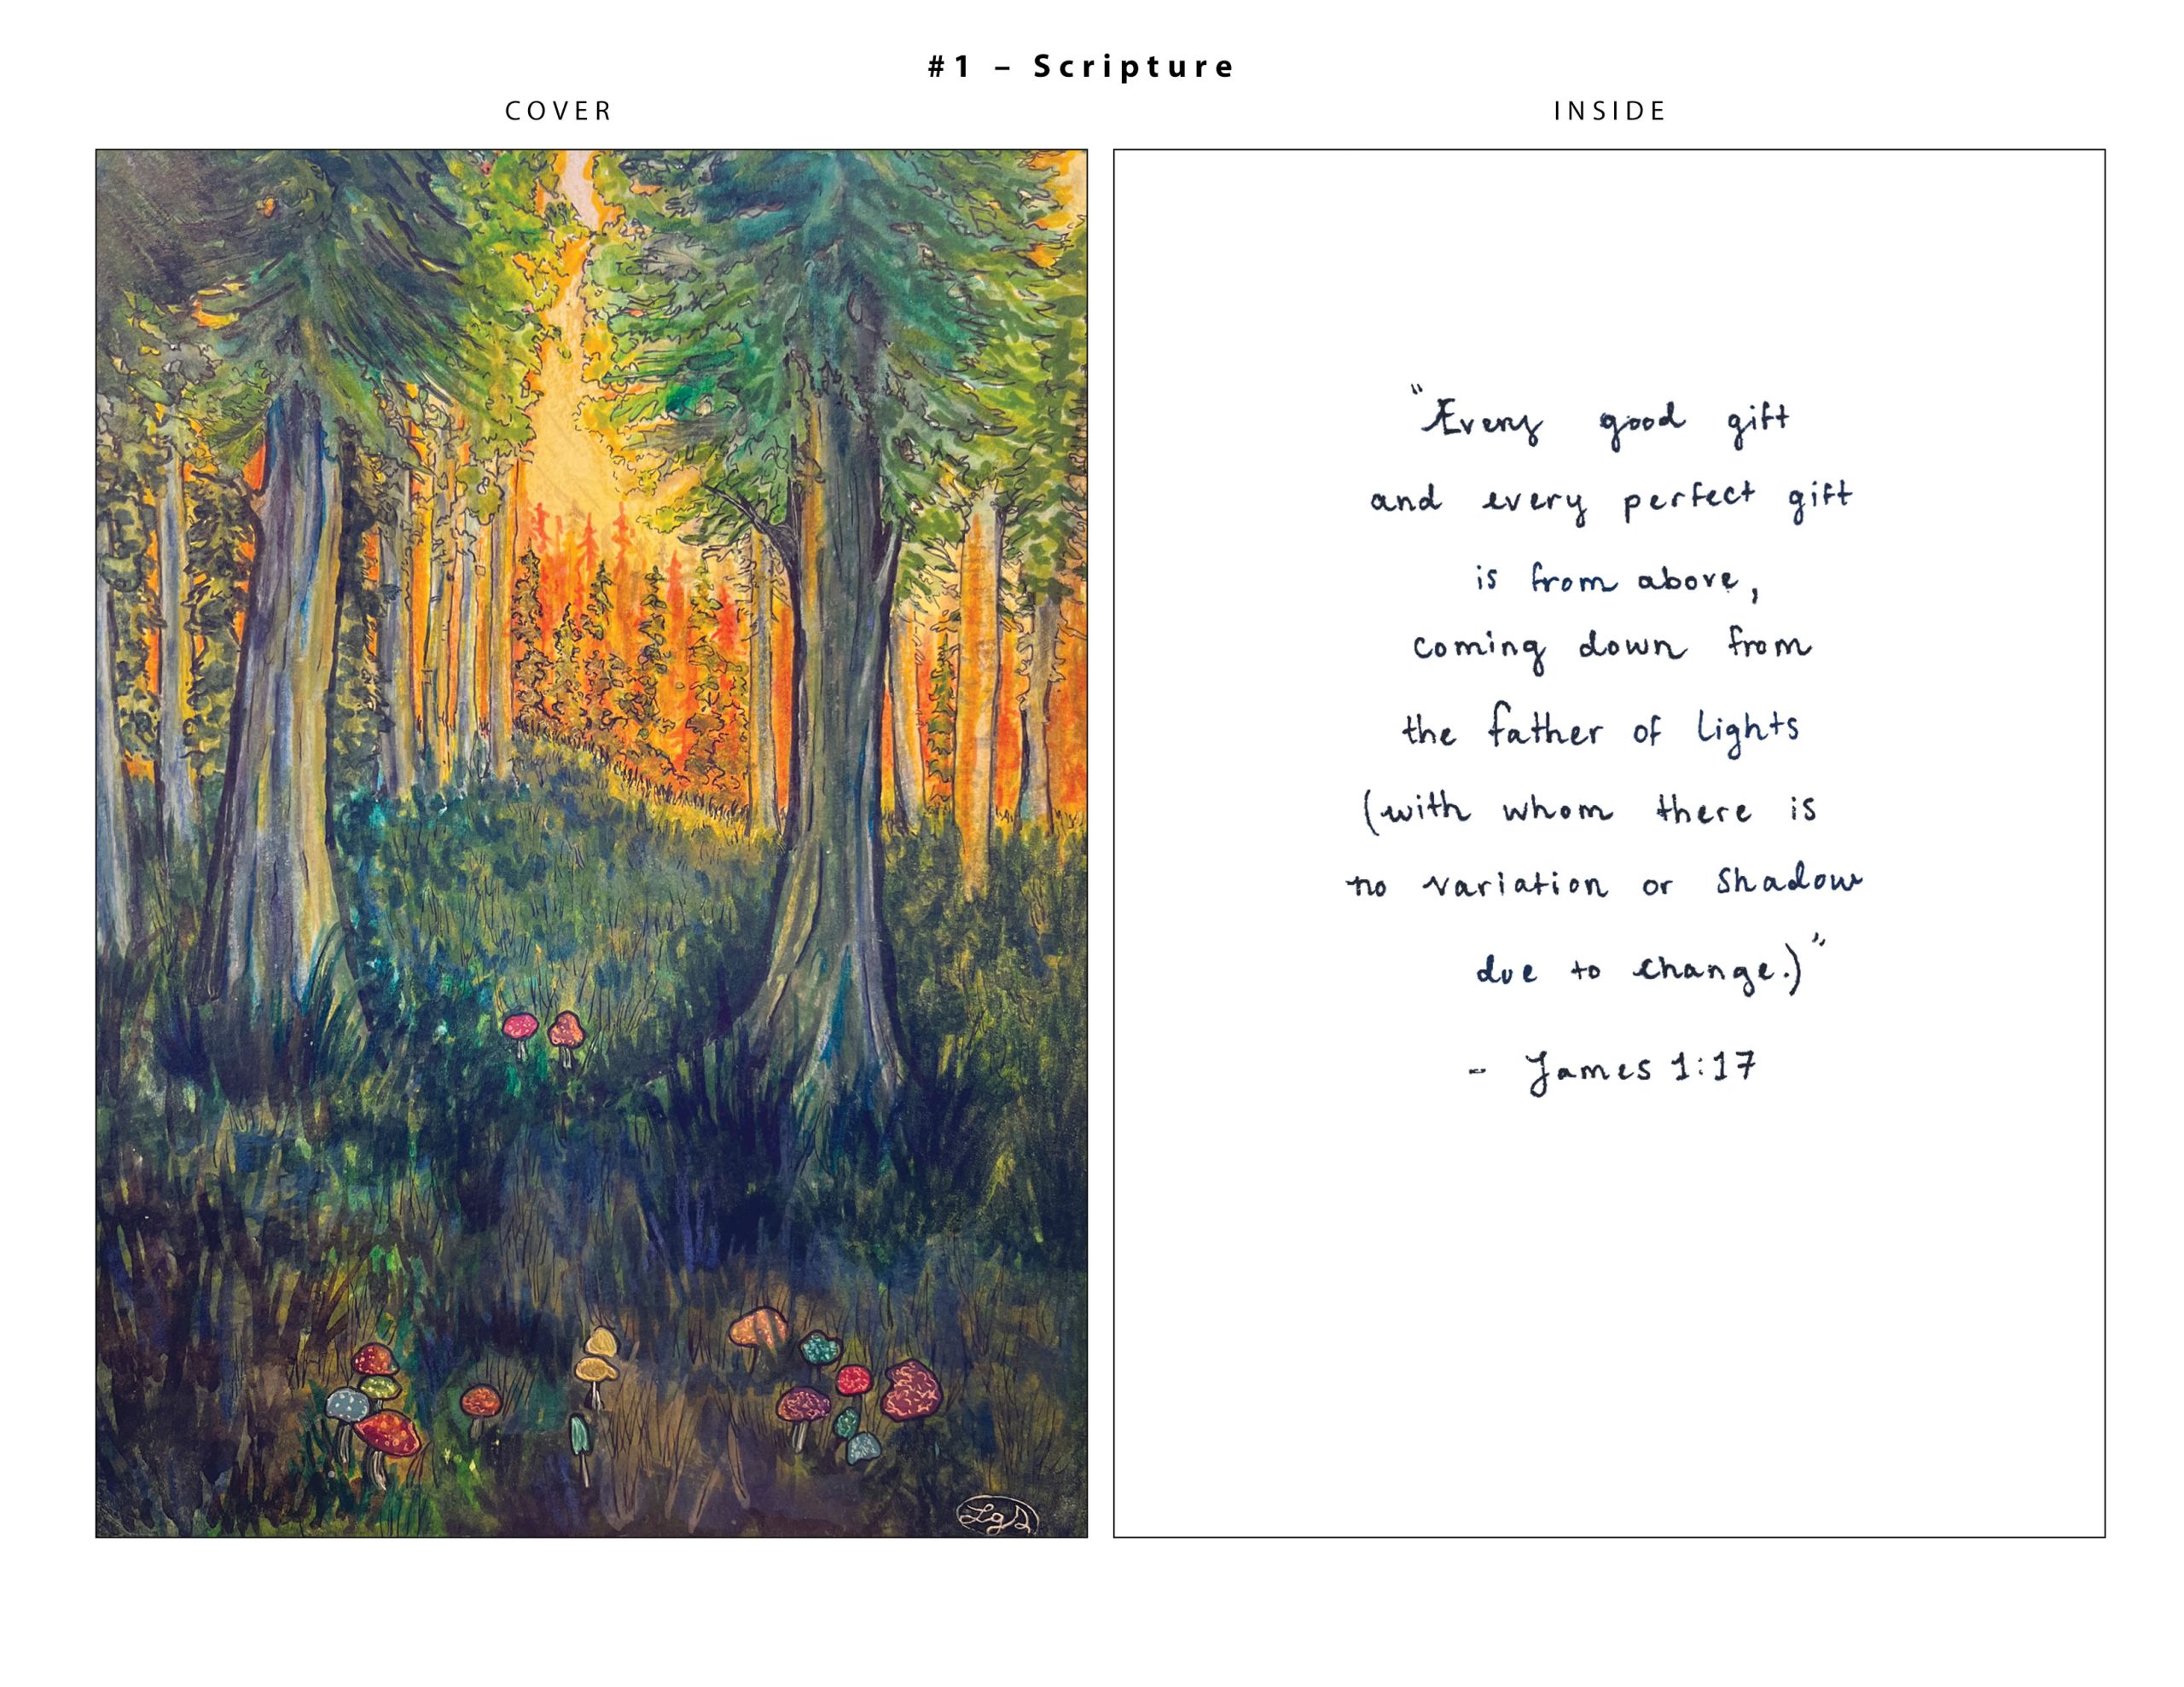 #1 – Scripture
COVER
INSIDE
"Every good gift
and every perfect gift
is from above,
coming down from
the father of lights
(with whom there is
no variation or shadow
due to change.)"
- James 1:17